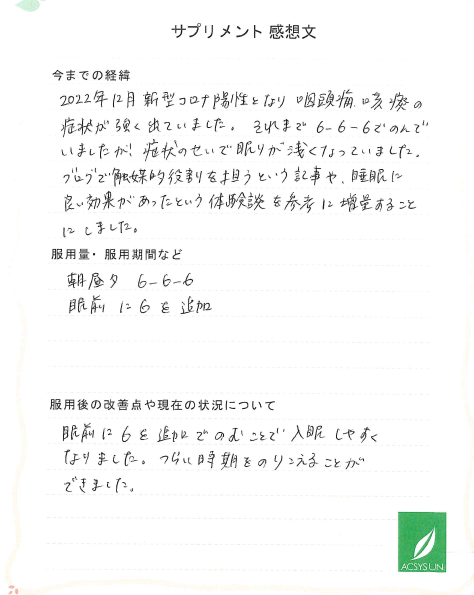 サプリメント 感想文
今までの経緯
2022年12月 新型コロナ陽性となり 咽頭痛、咳、痰の
症状が強く出ていました。それまで 6-6-6でのんで
いましたが、症状のせいで眠りが浅くなっていました。
ブログで触媒的役割を担うという記事や、睡眠に
良い効果があったという体験談を参考に増量すること
にしました。
服用量・服用期間など
朝昼夕 6-6-6
眠前 に 6 を 追加
服用後の改善点や現在の状況について
眠前に6を追加でのむことで入眠しやすく
なりました。つらい時期をのりこえることが
できました。
ACSYSUN